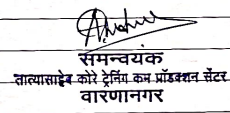 समन्वयक
तात्यासाहेब कोरे ट्रेनिंग कम प्रॉडक्शन सेंटर
वारणानगर